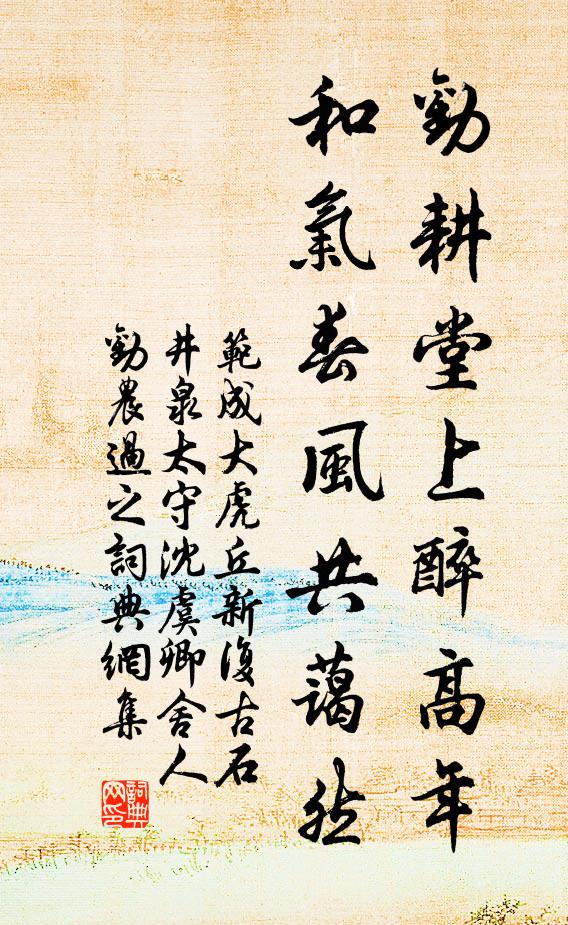 勸耕堂上醉高年
和氣春風共藹然
範成大虎丘新復古石
井泉太守沈虞卿舍人
勸農過之詞典網集
詞典
网印